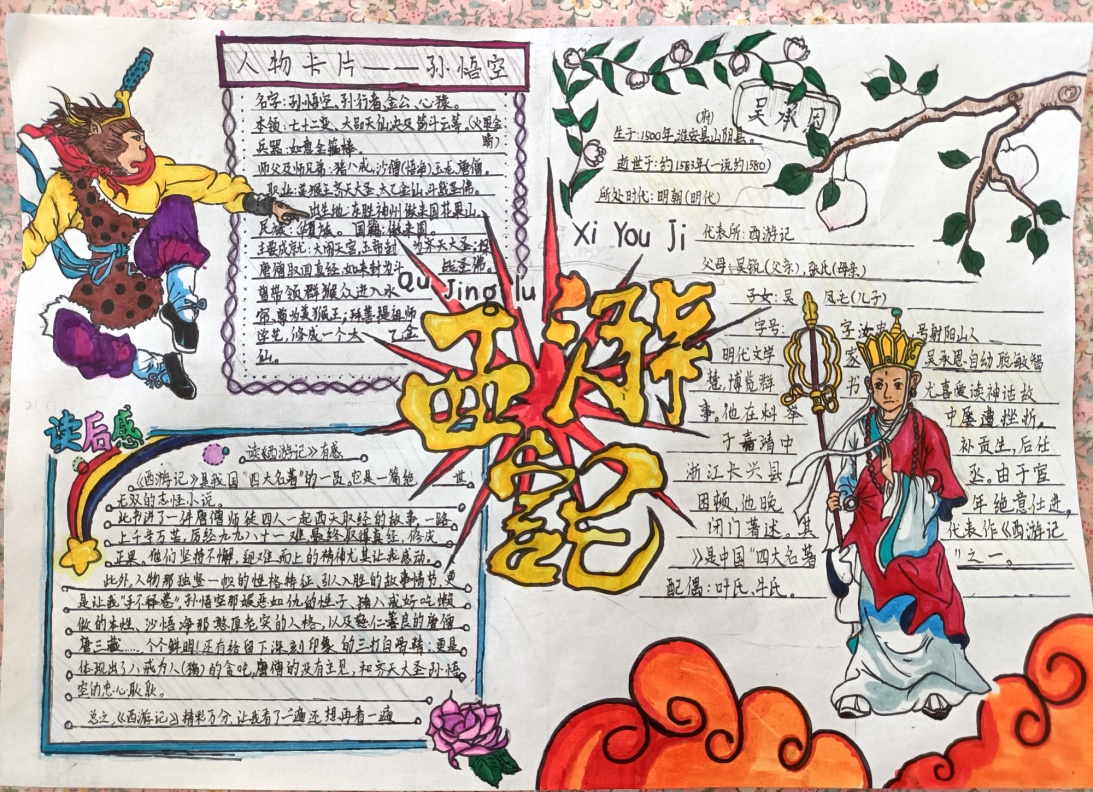 人物卡片——孙悟空
名字:孙悟空、孙行者、金公、心猿。
本领:七十二变、大品天仙决及筋斗云等。(火眼金
睛)
兵器:如意金箍棒。
师父及师兄弟:猪八戒、沙僧(悟净)玉龙、唐僧。
职业:美猴王、齐天大圣、太乙金仙、斗战圣佛。
出生地:东胜神州傲来国花果山。
民族: 国籍:傲来国。
主要成就:大闹天宫、玉帝封 为齐天大圣;护
唐僧取回真经,如来封为斗 战圣佛。
曾带领群猴众进入水
帘,尊为美猴王;拜菩提祖师
学艺,修成一个太 乙金
仙。
吴承恩
(府)
生于:1500年,淮安县山阴县。
逝世于:约1583年(一说约1580)
所处时代:明朝(明代)
Xi You Ji
代表所:西游记
父母:吴锐(父亲)、张氏(母亲)
子女:吴 凤毛(儿子)
字号: 字汝忠、号射阳山人
明代文学 家 吴承恩自幼聪敏智
慧,博览群 书 尤喜爱读神话故
事。他在科 举 中屡遭挫折。
于嘉靖中 补贡生,后任
浙江长兴县 丞。由于宦
困顿,他晚 年绝意仕进,
闭门著述。其 代表作《西游记
》是中国“四大名著 ”之一。
配偶:叶氏、牛氏。
Qu Jing Lu
西游
記
读后感
读《西游记》有感
《西游记》是我国“四大名著”的一员。它是一篇绝 世
无双的志怪小说。
此书讲了一件唐僧师徒四人一起西天取经的故事,一路
上千辛万苦,历经九九八十一难,最终取得真经,修成
正果。他们坚持不懈、迎难而上的精神尤其让我感动。
此外,人物那独竖一帜的性格特征、引人入胜的故事情节,更
是让我“手不释卷”。孙悟空那嫉恶如仇的性子、猪八戒好吃懒
做的本性、沙悟净那憨厚老实的人格、以及慈仁善良的唐僧
唐三藏……个个鲜明!还有给留下深刻印象的三打白骨精:更是
体现出了八戒为人(猪)的贪吃,唐僧的没有主见,和齐天大圣孙悟
空的忠心耿耿。
总之,《西游记》精彩万分,让我看了一遍还想再看一遍